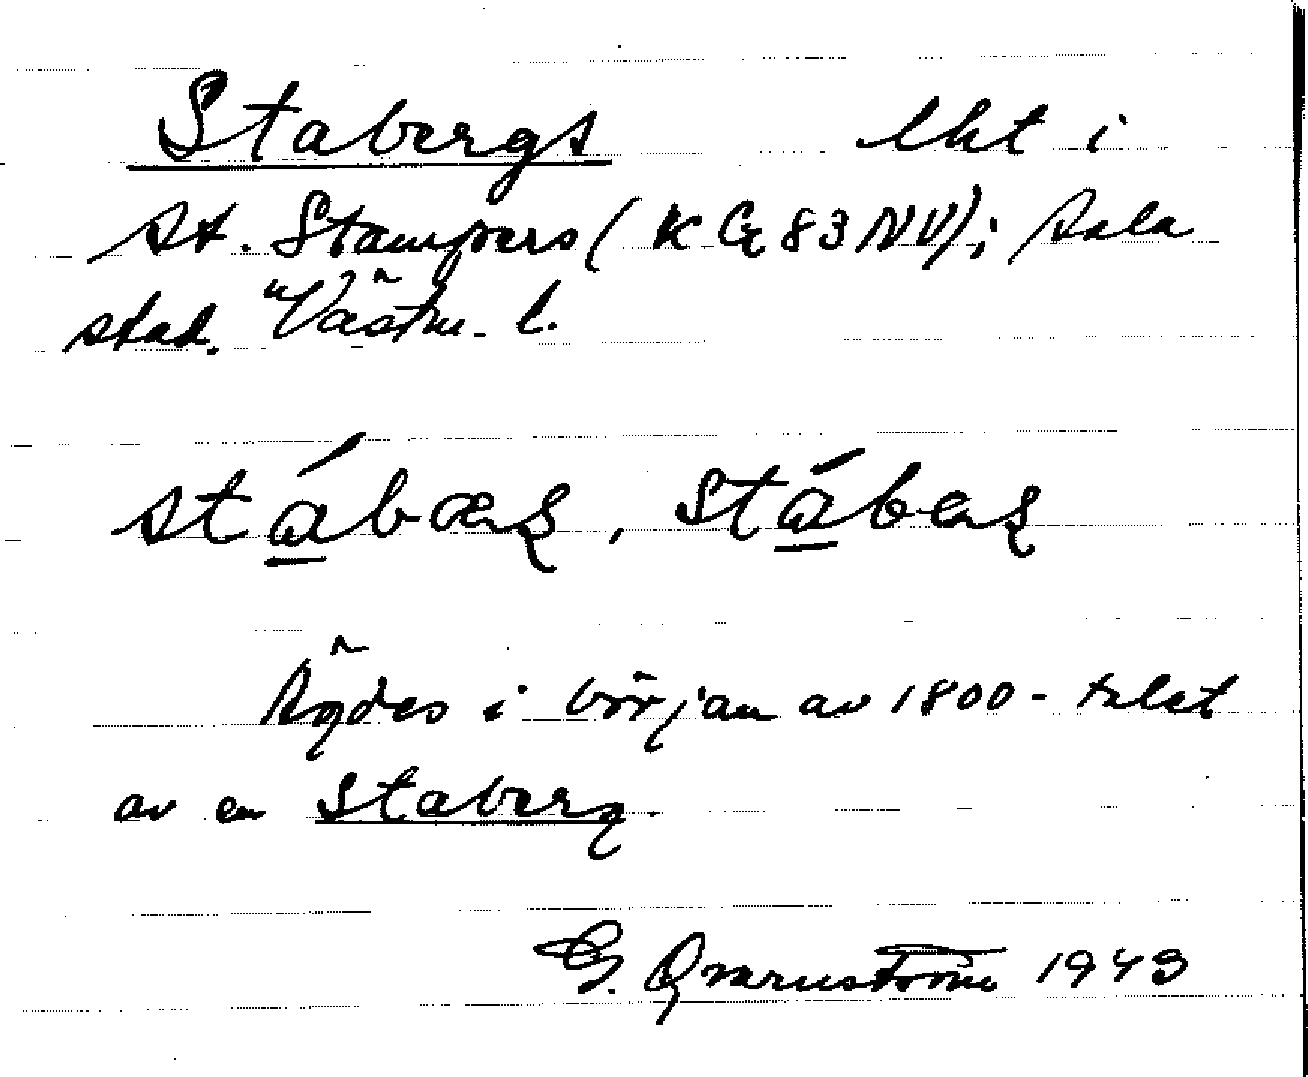 Stabergs lht i
St. Stampers (K Ca 83 NV); Sala
stad. Västm. l.
stábærg, stábærg
Ägdes i början av 1800-talet
av en Staberg.
G. Qvarnström 1943